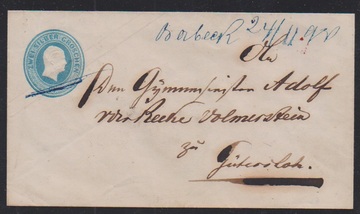 ZWEI SILBERGROSCHEN
Borbeck 24/11
An
Den Gymnasiasten Adolf
von der Recke Volmerstein
zu
Gütersloh.